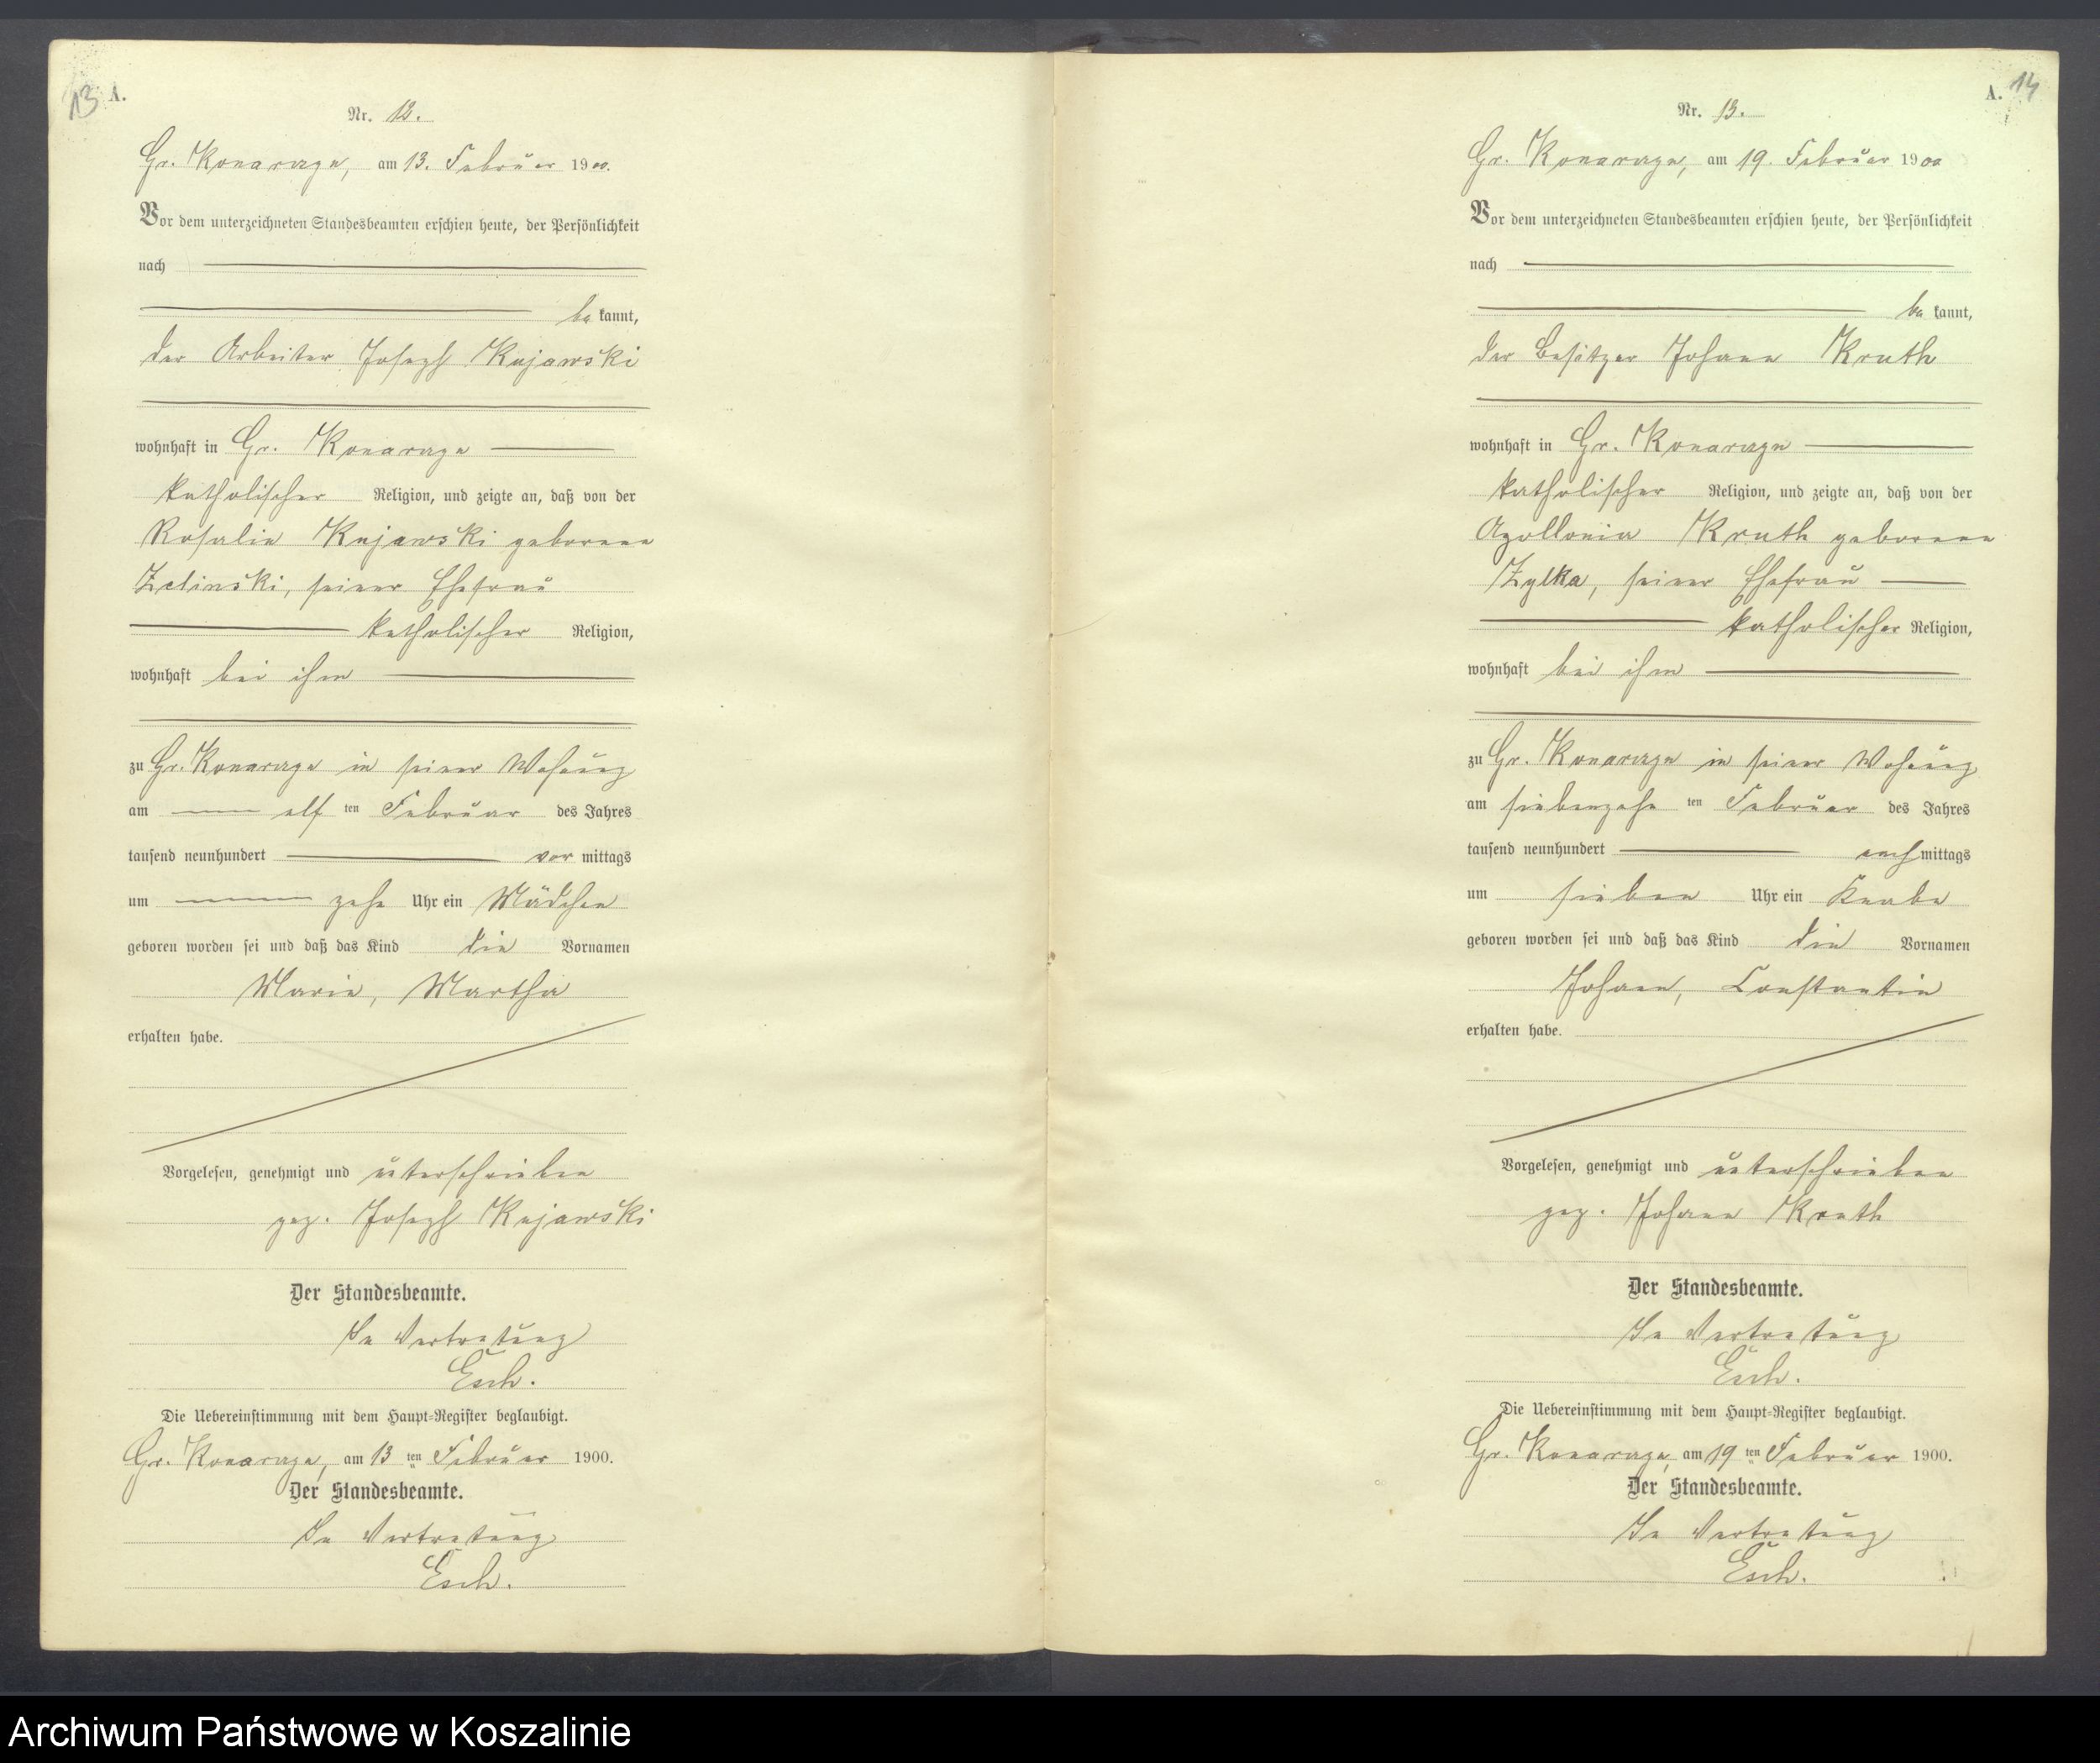 13 A.
Nr. 12.
Gr. Konarzyn, am 13. Februar 1900.
Vor dem unterzeichneten Standesbeamten erschien heute, der Persönlichkeit
nach
be kannt,
der Arbeiter Joseph Kujawski
wohnhaft in Gr. Konarzyn
katholischer Religion, und zeigte an, daß von der
Rosalie Kujawski geborene
Zelinski, seiner Ehefrau
katholischer Religion,
wohnhaft bei ihm
zu Gr. Konarzyn in seiner Wohnung
am elf ten Februar des Jahres
tausend neunhundert vor mittags
um zehn Uhr ein Mädchen
geboren worden sei und daß das Kind die Vornamen
Marie, Martha
erhalten habe.
Vorgelesen, genehmigt und unterschrieben
gez. Joseph Kujawski
Der Standesbeamte.
In Vertretung
Esch.
Die Uebereinstimmung mit dem Haupt-Register beglaubigt.
Gr. Konarzyn, am 13 ten Februar 1900.
Der Standesbeamte.
In Vertretung
Esch.
A. 14
Nr. 13.
Gr. Konarzyn, am 19. Februar 1900
Vor dem unterzeichneten Standesbeamten erschien heute, der Persönlichkeit
nach
be kannt,
der Besitzer Johann Kruth
wohnhaft in Gr. Konarzyn
katholischer Religion, und zeigte an, daß von der
Apollonia Kruth geborene
Zylka, seiner Ehefrau
katholischer Religion,
wohnhaft bei ihm
zu Gr. Konarzyn in seiner Wohnung
am siebenzehn ten Februar des Jahres
tausend neunhundert nach mittags
um sieben Uhr ein Knabe
geboren worden sei und daß das Kind die Vornamen
Johann, Constantin
erhalten habe.
Vorgelesen, genehmigt und unterschrieben
gez. Johann Kruth
Der Standesbeamte.
In Vertretung
Esch.
Die Uebereinstimmung mit dem Haupt-Register beglaubigt.
Gr. Konarzyn, am 19 ten Februar 1900.
Der Standesbeamte.
In Vertretung
Esch.
Archiwum Państwowe w Koszalinie